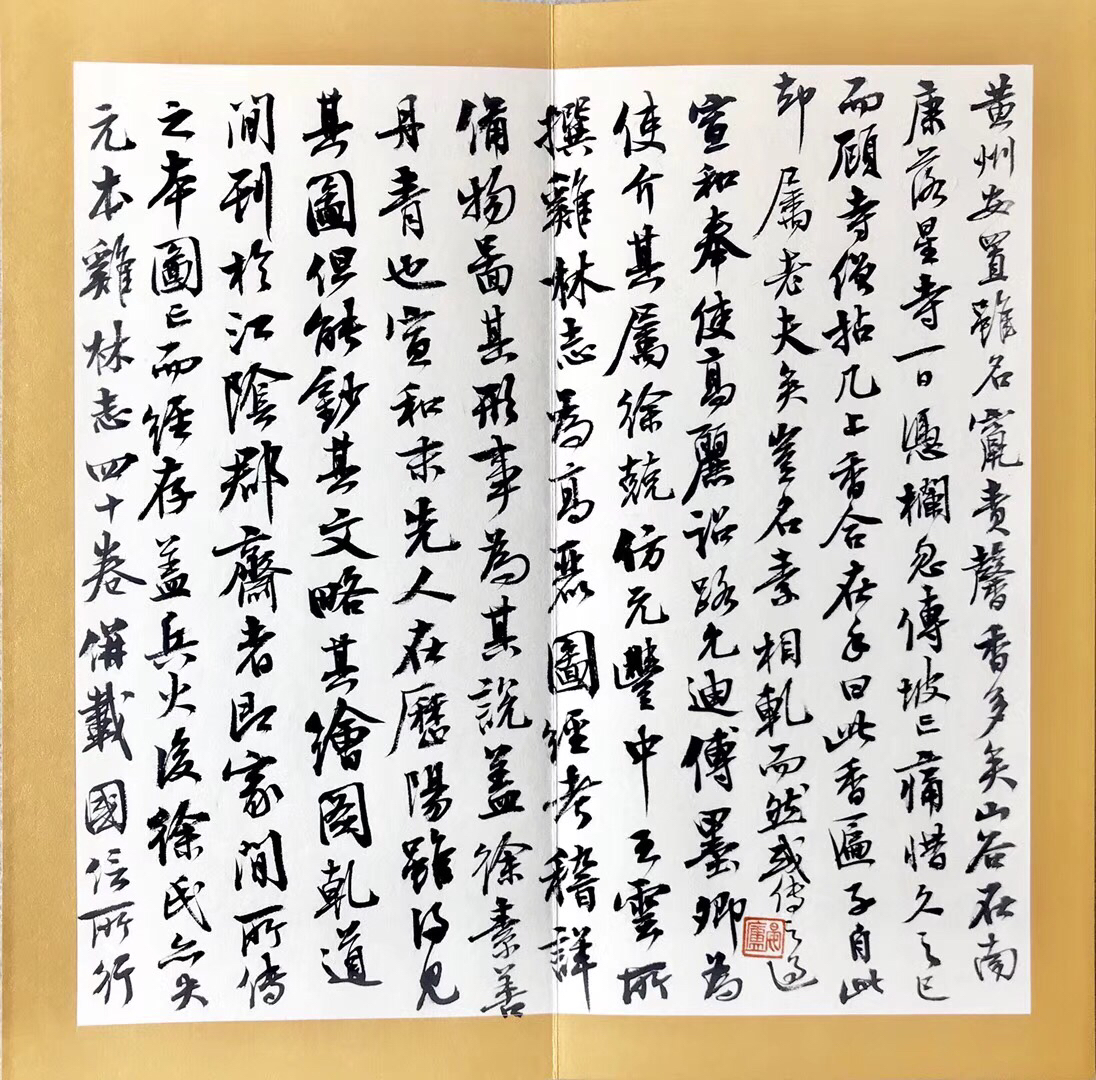 黄州安置雖名竄責馨香多矣山谷在南
康落星寺一日憑欄忽傳坡亡痛惜久之已
而顧寺僧拈几上香合在手曰此香匾子自此
却屬老夫矣豈名素相軋而然或傳之過
宣和奉使高麗詔路允迪傅墨卿為
使介其屬徐兢仿元豐中王雲所
撰雞林志為高麗圖經考稽詳
備物圖其形事為其說蓋徐素善
丹青也宣和末先人在歷陽雖得見
其圖但能鈔其文略其繪圖乾道
間刊於江陰郡齋者即家間所傳
之本圖亡而經存蓋兵火後徐氏亦失
元本雞林志四十卷併載國信所行